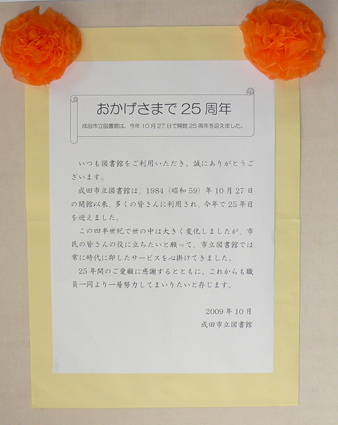 おかげさまで 25 周年
成田市立図書館は、今年 10 月 27 日で開館 25 周年を迎えました。
いつも図書館をご利用いただき、誠にありがとうご
ざいます。
成田市立図書館は、1984（昭和 59）年 10 月 27 日
の開館以来、多くの皆さんに利用され、今年で 25 年目
を迎えました。
この四半世紀で世の中は大きく変化しましたが、市
民の皆さんの役に立ちたいと願って、市立図書館では
常に時代に即したサービスを心掛けてきました。
25 年間のご愛顧に感謝するとともに、これからも職
員一同より一層努力してまいりたいと存じます。
2009 年 10 月
成田市立図書館